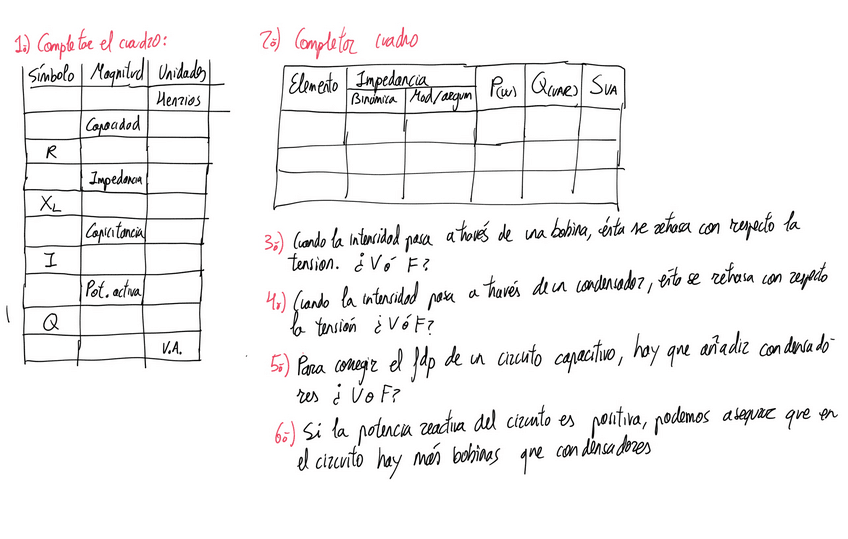 1º) Completar el cuadro:
Símbolo Magnitud Unidades
Henrios
Capacidad
R
Impedancia
XL
Capacitancia
I
Pot. activa
Q
V.A.
2º) Completar cuadro
Elemento Impedancia P(W) Q(VAR) SVA
Binómica Mod/argum
3º) Cuando la intensidad pasa a través de una bobina, ésta se retrasa con respecto la
tension. ¿V ó F?
4º) Cuando la intensidad pasa a través de un condensador, esta se retrasa con respecto
la tensión ¿V ó F?
5º) Para corregir el fdp de un circuito capacitivo, hay que añadir condensado-
res ¿V o F?
6º) Si la potencia reactiva del circuito es positiva, podemos asegurar que en
el circuito hay más bobinas que condensadores